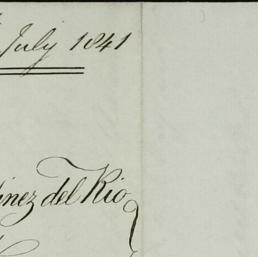 July 1841
inez del Rio